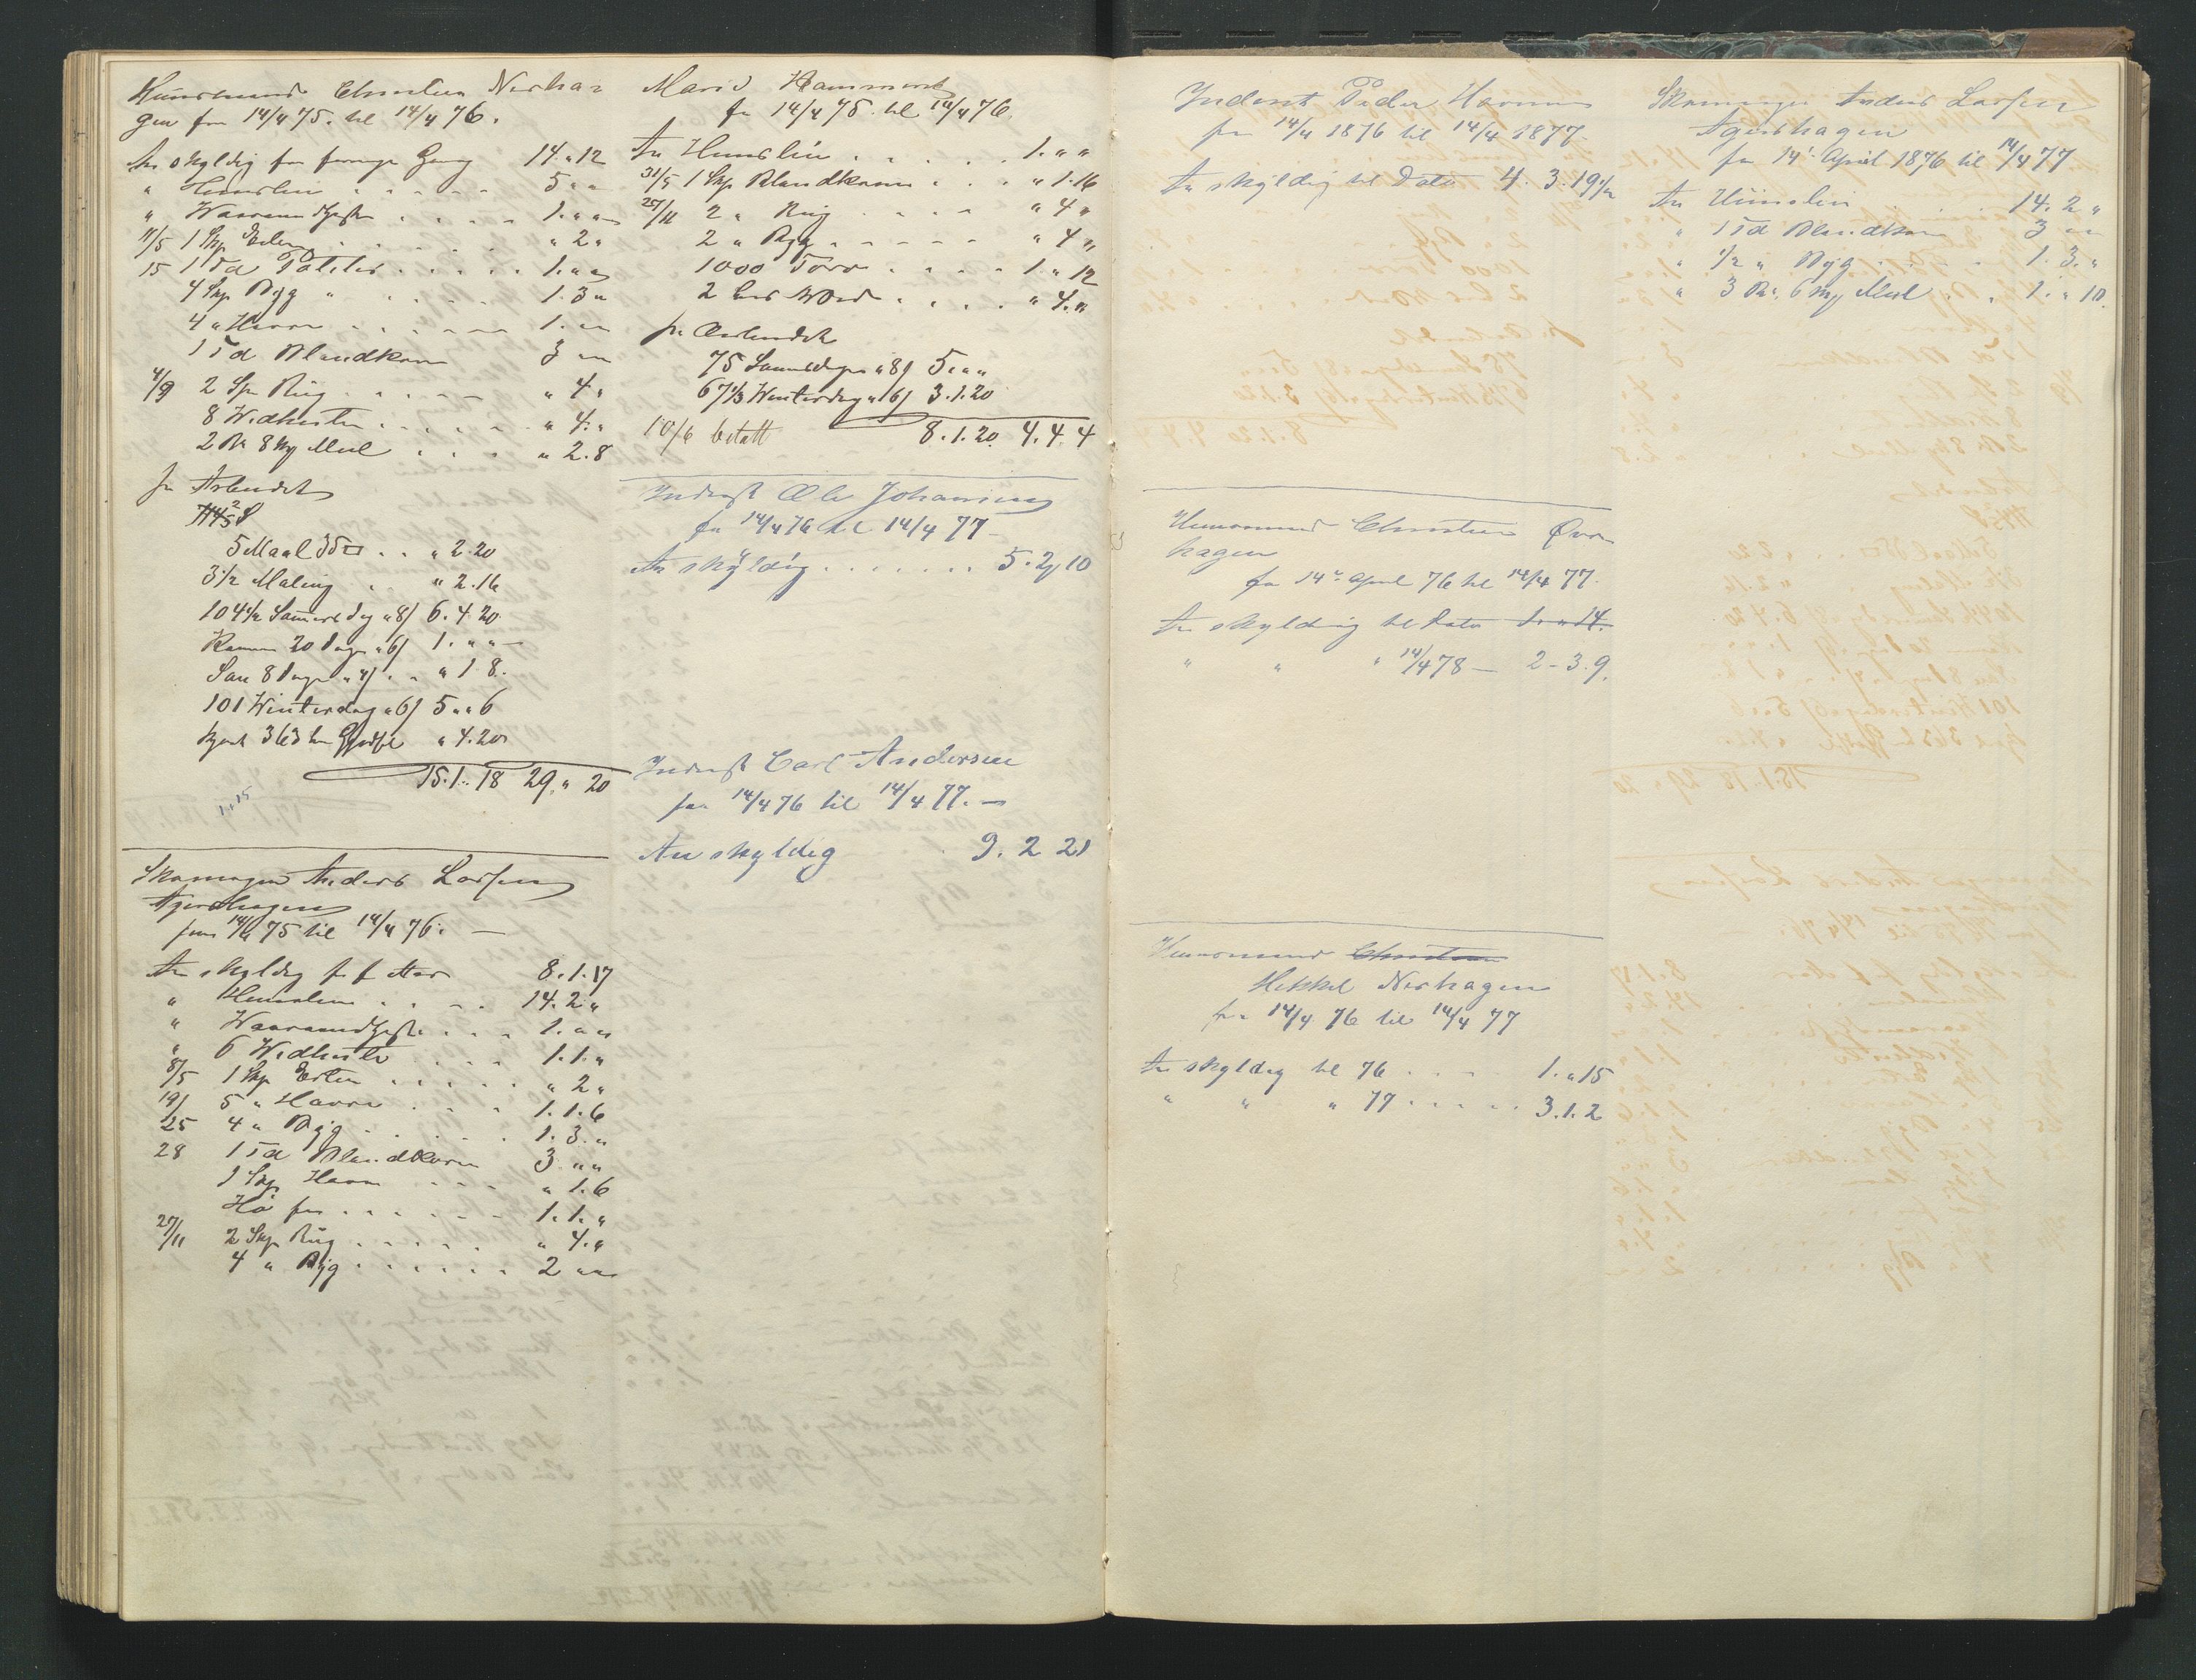 Huusmand Christen Nerha=
gen fra 14/4 75. til 14/4 76.
An skyldig fra forrige Gang 14 " 12
" Huusleie . . . . . 5 " "
" . . . . 1. " "
11/5 1 Skp Erter . . . . . " 2 "
15 1 Td Poteter . . . . . 1. " "
4 Skp Byg " . . . . 1. 3 "
4 " Havre . . . . . . 1. " "
1 Td Blandkorn 3 " "
4/9 2 Sp Rug . . . . . " 4 "
8 Vedheste . . . . . . " 4. "
2 B 8 Mkr Meel . . . . " 2. 8
pr Arbeidet
5 Maal . . " 2. 20
3 1/2 Maling . . " 2. 16
104 1/2 Sommerdag a 8/ 6. 4. 20.
20 Dage a 6/ 1. " " —
8 Dage a 4/ . . " 1. 8.
101 Winterdag a 6/ 5 " " 6
363 " 4. 20
15. 1. 18 29. " 20
1. " 15
Skomager Anders Larsen
Agershagen
fra 14/4 75 til 14/4 76. —
An skyldig fr f Aar 8. 1. 17
" Huusleie . . . . 14. 2 "
" . . . 1. " "
" 6 Vedheste . . . . 1. 1. "
8/5 1 Skp Erter . . . . . " 2 "
19/ 5 " Havre . . . . 1. 1. 6
25 4 " Byg . . . . . . 1. 3. "
28 1 Td Blandkorn 3 " "
1 Skp Havre . . . " 1. 6
Hø for . . . . . . 1. 1. "
27/11 2 Skp Rug . . . . . " 4. "
4 " Byg . . . . . . 2 " "
Marie
fr 14/4 75. til 14/4 76.
An Huusleie . . . . . 1. " "
31/5 1 Skp Blandkorn . . . " 1. 16
27/11 2 " Rug . . . . " 4 "
2 " Byg . . . . . " 4 "
1000 Torv . . . . 1. " 12
2 Les Wed . . . . " 4. "
pr Arbeidet
75 Sommerdage a 8/ 5. " "
67 1/3 Winterdag a 6/ 3. 1. 20
10/6 betalt 8. 1. 20. 4. 4. 4
Inderst Ole Johannsen
fra 14/4 76 til 14/4 77 —
An skyldig . . . . . . . 5. 2, 10
Inderst Carl Andersen
fra 14/4 76 til 14/4 77. —
An skyldig 9. 2 21
Inderst Peder
fra 14/4 1876 til 14/4 1877 —
An skyldig til Dato 4. 3. 19 1/2
Huusmand Christen Øver
hagen
fra 14de April 76 til 14/4 77.
An skyldig til Dato 1. " 14.
" " " 14/4 78 — 2 - 3. 9.
Huusmand Christen
Nerhagen
fra 14/4 76 til 14/4 77
An skyldig til 76 . . . . 1. " 15
" " " 77 . . . . . 3. 1. 2
Skomager Anders Larsen
Agershagen
fra 14de April 1876 til 14/4 77
An Huusleie . . . . 14. 2 "
" 1 Td Blandkorn 3 " "
" 1/2 " Byg . . . . . 1. 3. "
" 3 B. 6 Mkr Meel . . 1. " 10.